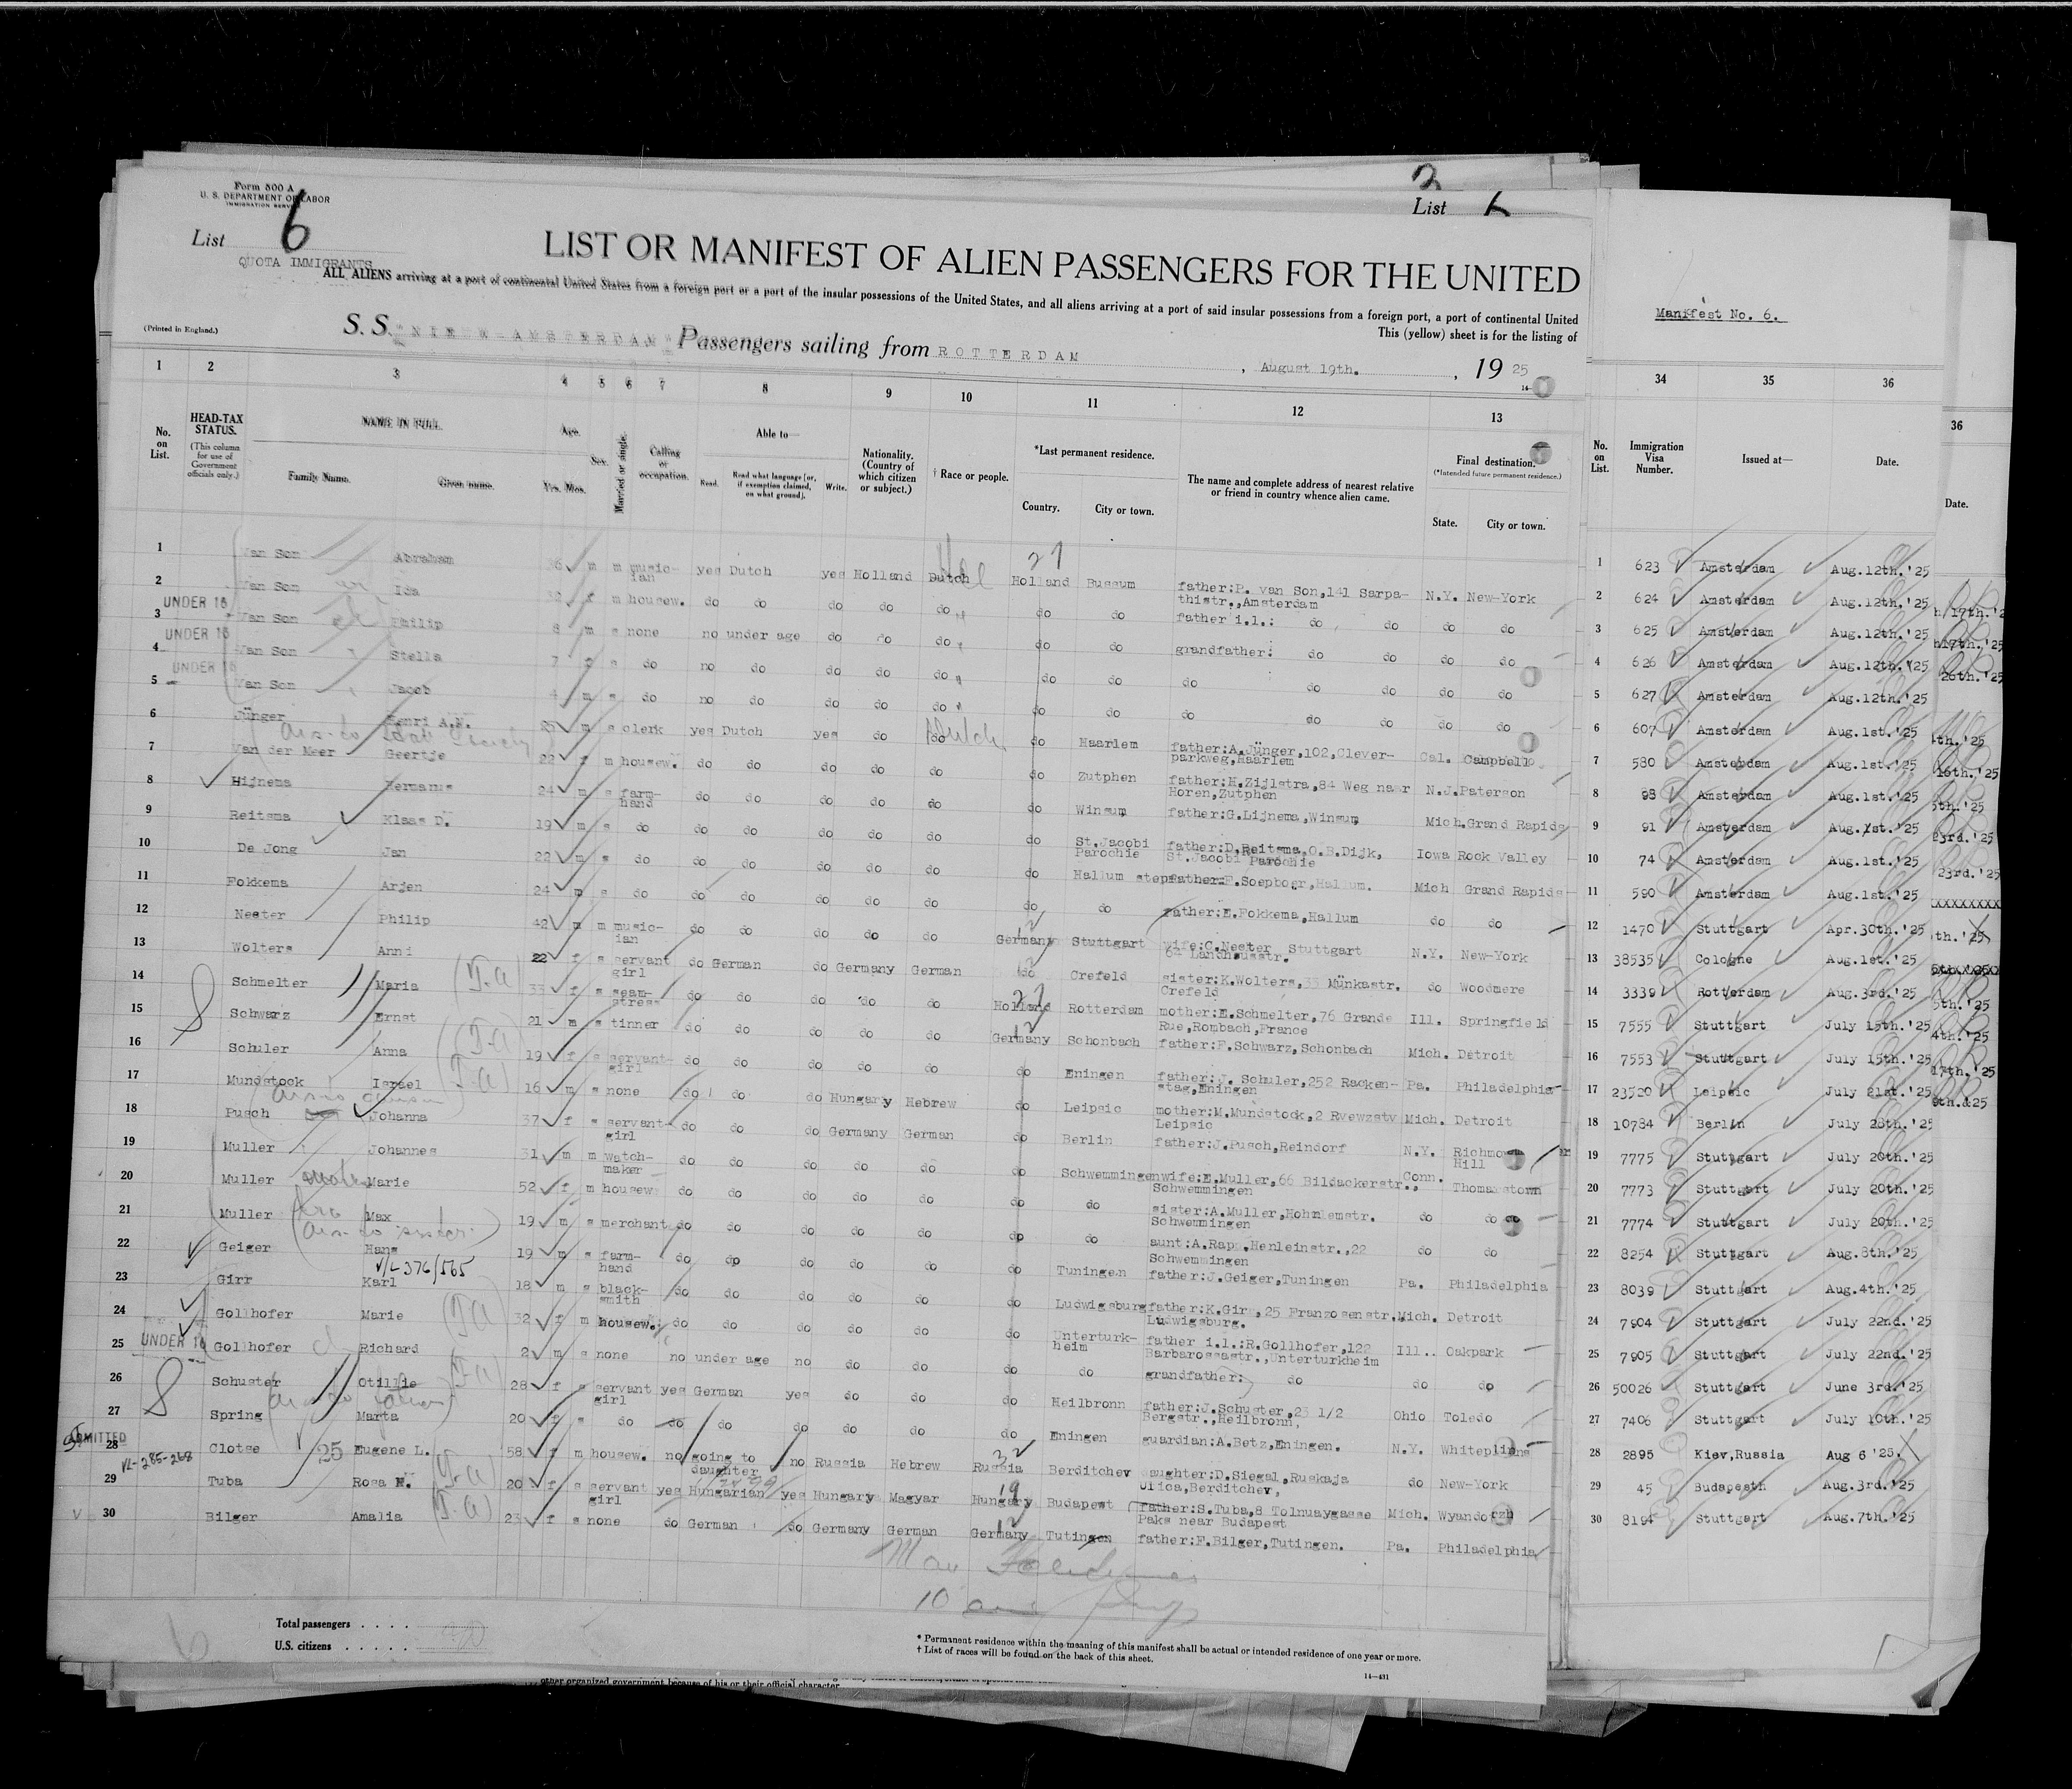 Form 500 A
U. S. DEPARTMENT OF LABOR
IMMIGRATION SERVICE
List 6
List 6
QUOTA IMMIGRANTS
LIST OR MANIFEST OF ALIEN PASSENGERS FOR THE UNITED
ALL ALIENS arriving at a port of continental United States from a foreign port or a port of the insular possessions of the United States, and all aliens arriving at a port of said insular possessions from a foreign port, a port of continental United
This (yellow) sheet is for the listing of
(Printed in England.)
S. S. "NIEUW-AMSTERDAM" Passengers sailing from ROTTERDAM, August 19th., 1925
Manifest No. 6.
1 2 3 4 5 6 7 8 9 10 11 12 13 34 35 36
No. on List.
HEAD-TAX STATUS. (This column for use of Government officials only.)
NAME IN FULL.
Family Name. Given name.
Age. Yrs. Mos.
Sex.
Married or single.
Calling or occupation.
Able to—
Read. Read what language [or, if exemption claimed, on what ground]. Write.
Nationality. (Country of which citizen or subject.)
† Race or people.
*Last permanent residence.
Country. City or town.
The name and complete address of nearest relative or friend in country whence alien came.
Final destination. (*Intended future permanent residence.)
State. City or town.
No. on List. Immigration Visa Number. Issued at— Date.
36
Date.
1 Van Son Abraham 36 m m music-ian yes Dutch yes Holland Dutch Holland Bussum father:P. van Son,141 Sarpa-thistr.,Amsterdam N.Y. New-York
2 Van Son Ida f m housew. do do do do do do do father i.l.: do do do do
UNDER 16 3 Van Son Philip 8 m s none no under age do do do do do grandfather: do do do do
UNDER 16 4 Van Son Stella 7 f s do no do do do do do do do do do do do
UNDER 16 5 Van Son Jacob 4 m s do no do do do do do do do do do do do
6 Jünger Henri A.N. 25 m s clerk yes Dutch yes do do do Haarlem father:A.Jünger,102,Clever-parkweg,Haarlem Cal. Campbell
7 Van der Meer Geertje 22 f m housew. do do do do do do Zutphen father:H.Zijlstra,84 Weg naar Horen,Zutphen N.J. Paterson
8 Hijnema Hermanus 24 m s farm-hand do do do do do do Winsum father:G.Lijnema,Winsum Mich. Grand Rapids
9 Reitsma Klaas D. 19 m s do do do do do do do St.Jacobi Parochie father:D.Reitsma,O.B.Dijk, St.Jacobi Parochie Iowa Rock Valley
10 De Jong Jan 22 m s do do do do do do do Hallum stepfather:F.Soepboer,Hallum. Mich Grand Rapids
11 Fokkema Arjen 24 m s do do do do do do do do father:E.Fokkema,Hallum do do
12 Nester Philip 42 m m music-ian do do do do do Germany Stuttgart wife:C.Nester Stuttgart 64 Landhausstr. N.Y. New-York
13 Wolters Anni 22 f s servant girl do German do Germany German do Crefeld sister:K.Wolters,33 Münkastr. Crefeld do Woodmere
14 Schmelter Maria 33 f s seam-stress do do do do do Holland Rotterdam mother:E.Schmelter,76 Grande Rue,Rombach,France Ill. Springfield
15 Schwarz Ernst 21 m s tinner do do do do do Germany Schonbach father:F.Schwarz,Schonbach Mich. Detroit
16 Schuler Anna 19 f s servant-girl do do do do do do Eningen father:J. Schuler,252 Racken-stag,Eningen Pa. Philadelphia
17 Mundstock Israel 16 m s none do do do Hungary Hebrew do Leipsic mother:M.Mundstock,2 Leipsic Mich. Detroit
18 Pusch Johanna 37 f s servant-girl do do do Germany German do Berlin father:J.Pusch,Reindorf N.Y. Richmond Hill
19 Muller Johannes 31 m m watch-maker do do do do do do Schwemmingen wife:E.Muller,66 Bildackerstr., Schwemmingen Conn. Thomastown
20 Muller Marie 52 f m housew. do do do do do do do sister:A.Muller,Hohnlemstr. Schwemmingen do do
21 Muller Max 19 m s merchant do do do do do do do aunt:A.Rapp,Henleinstr.,22 Schwemmingen do do
22 Geiger Hans 19 m s farm-hand do do do do do do Tuningen father:J.Geiger,Tuningen Pa. Philadelphia
V/L 376/565
23 Girr Karl 18 m s black-smith do do do do do do Ludwigsburg father:K.Girr,25 Franzosenstr. Ludwigsburg. Mich. Detroit
24 Gollhofer Marie 32 f m housew. do do do do do do Unterturk-heim father i.l.:R.Gollhofer,122 Barbarossastr.,Unterturkheim Ill.. Oakpark
UNDER 16 25 Gollhofer Richard 2 m s none no under age no do do do do grandfather: do do do
26 Schuster Otillie 28 f s servant girl yes German yes do do do Heilbronn father:J.Schuster,23 1/2 Bergstr.,Heilbronn, Ohio Toledo
27 Spring Marta 20 f s do do do do do do do Eningen guardian:A.Betz,Eningen. N.Y. Whiteplains
ADMITTED 28 Clotse Eugene L. 58 f m housew. no going to daughter no Russia Hebrew Russia Berditchev daughter:D.Siegal,Ruskaja Ulica,Berditchev, do New-York
VL-285-268
29 Tuba Rosa N. 20 f s servant girl yes Hungarian yes Hungary Magyar Hungary Budapest father:S.Tuba,8 Tolnuaygasse Paks near Budapest Mich. Wyandotte
30 Bilger Amalia 23 f s none do German do Germany German Germany Tutingen father:F.Bilger,Tutingen. Pa. Philadelphia
1 623 Amsterdam Aug.12th.'25
2 624 Amsterdam Aug.12th.'25
3 625 Amsterdam Aug.12th.'25
4 626 Amsterdam Aug.12th.'25
5 627 Amsterdam Aug.12th.'25
6 607 Amsterdam Aug.1st.'25
7 580 Amsterdam Aug.1st.'25
8 98 Amsterdam Aug.1st.'25
9 91 Amsterdam Aug.1st.'25
10 74 Amsterdam Aug.1st.'25
11 590 Amsterdam Aug.1st.'25
12 1470 Stuttgart Apr.30th.'25
13 38535 Cologne Aug.1st.'25
14 3339 Rotterdam Aug.3rd.'25
15 7555 Stuttgart July 15th.'25
16 7553 Stuttgart July 15th.'25
17 23520 Leipsic July 21st.'25
18 10784 Berlin July 28th.'25
19 7775 Stuttgart July 20th.'25
20 7773 Stuttgart July 20th.'25
21 7774 Stuttgart July 20th.'25
22 8254 Stuttgart Aug.8th.'25
23 8039 Stuttgart Aug.4th.'25
24 7904 Stuttgart July 22nd.'25
25 7905 Stuttgart July 22nd.'25
26 50026 Stuttgart June 3rd.'25
27 7406 Stuttgart July 10th.'25
28 2895 Kiev,Russia Aug 6 '25.
29 45 Budapesth Aug.3rd.'25
30 8194 Stuttgart Aug.7th.'25
Total passengers . . . .
U.S. citizens . . . . .
* Permanent residence within the meaning of this manifest shall be actual or intended residence of one year or more.
† List of races will be found on the back of this sheet.
14—431
other organized government because of his or their official character